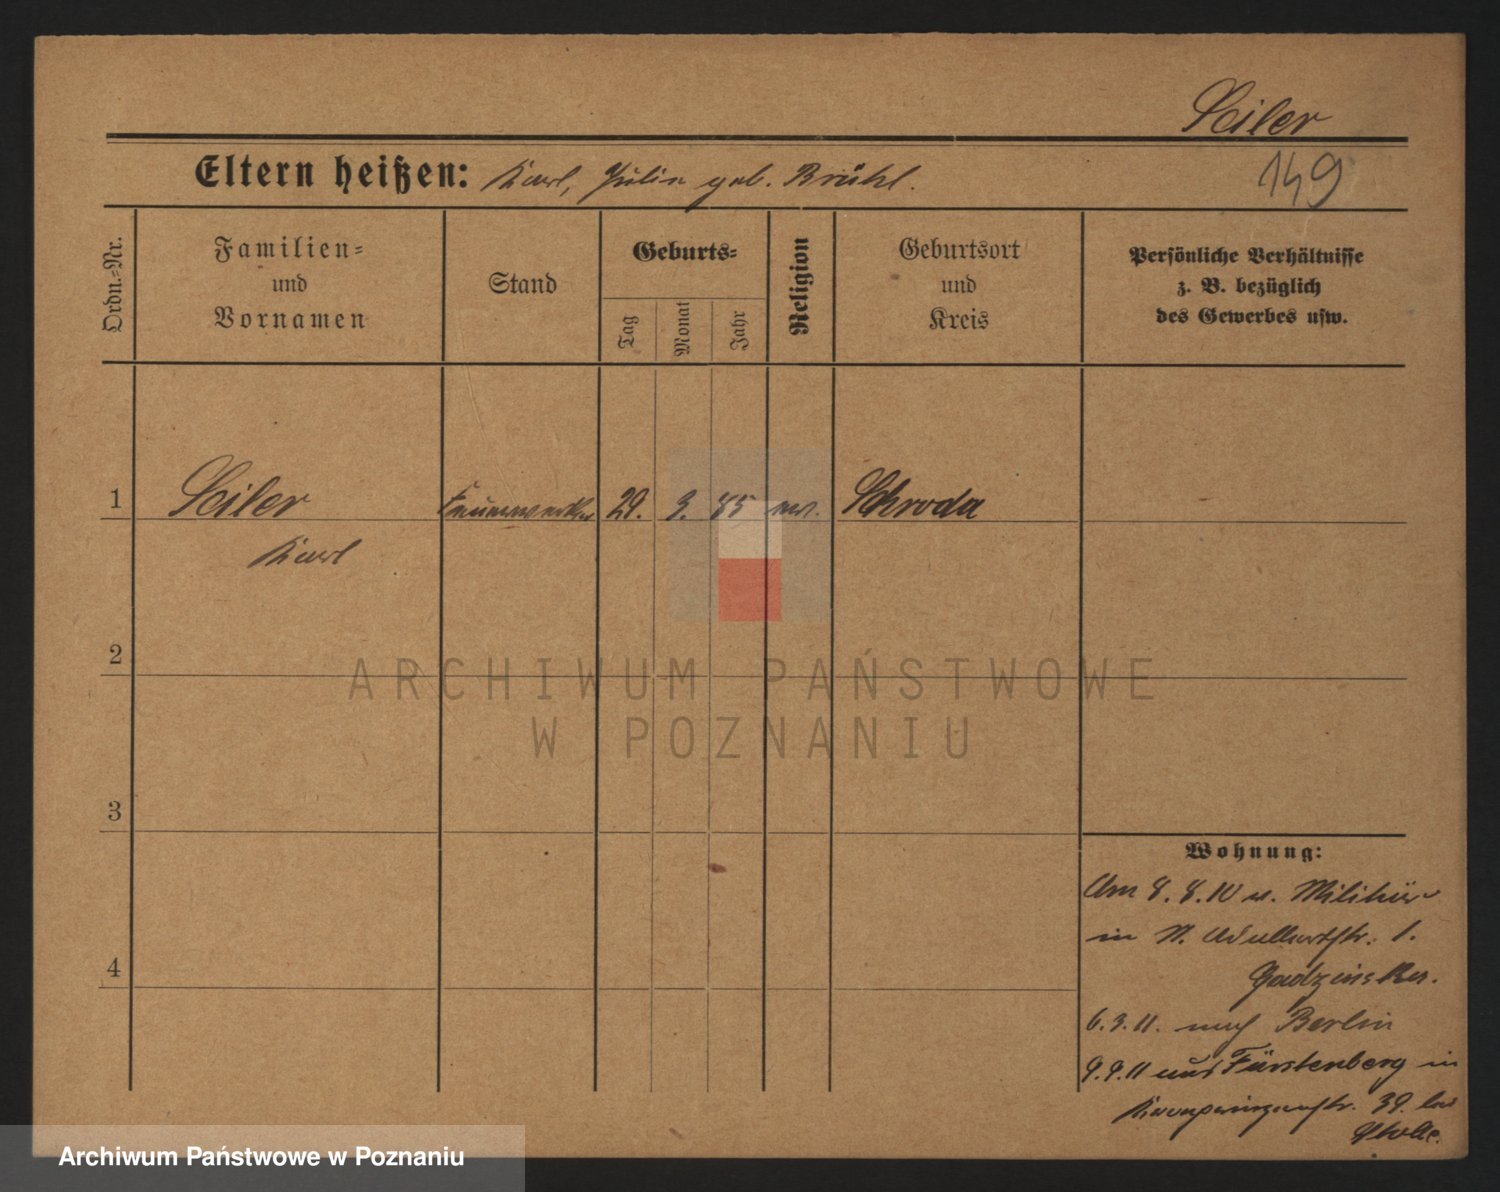 Seiler
149
Eltern heißen: Karl, Julia geb. Brühl.
Ordn.-Nr.
Familien-
und
Vornamen
Stand
Geburts-
Tag
Monat
Jahr
Religion
Geburtsort
und
Kreis
Persönliche Verhältnisse
z. B. bezüglich
des Gewerbes usw.
1 Seiler Feuerwerker 29. 3. 85 ev. Schroda
Karl
2
3
4
ARCHIWUM PAŃSTWOWE
W POZNANIU
Wohnung:
Am 8.8.10 v. Militär
in
6.3.11. nach Berlin
9.9.11 aus Fürstenberg in
Kronprinzenstr. 39. bei
Archiwum Państwowe w Poznaniu